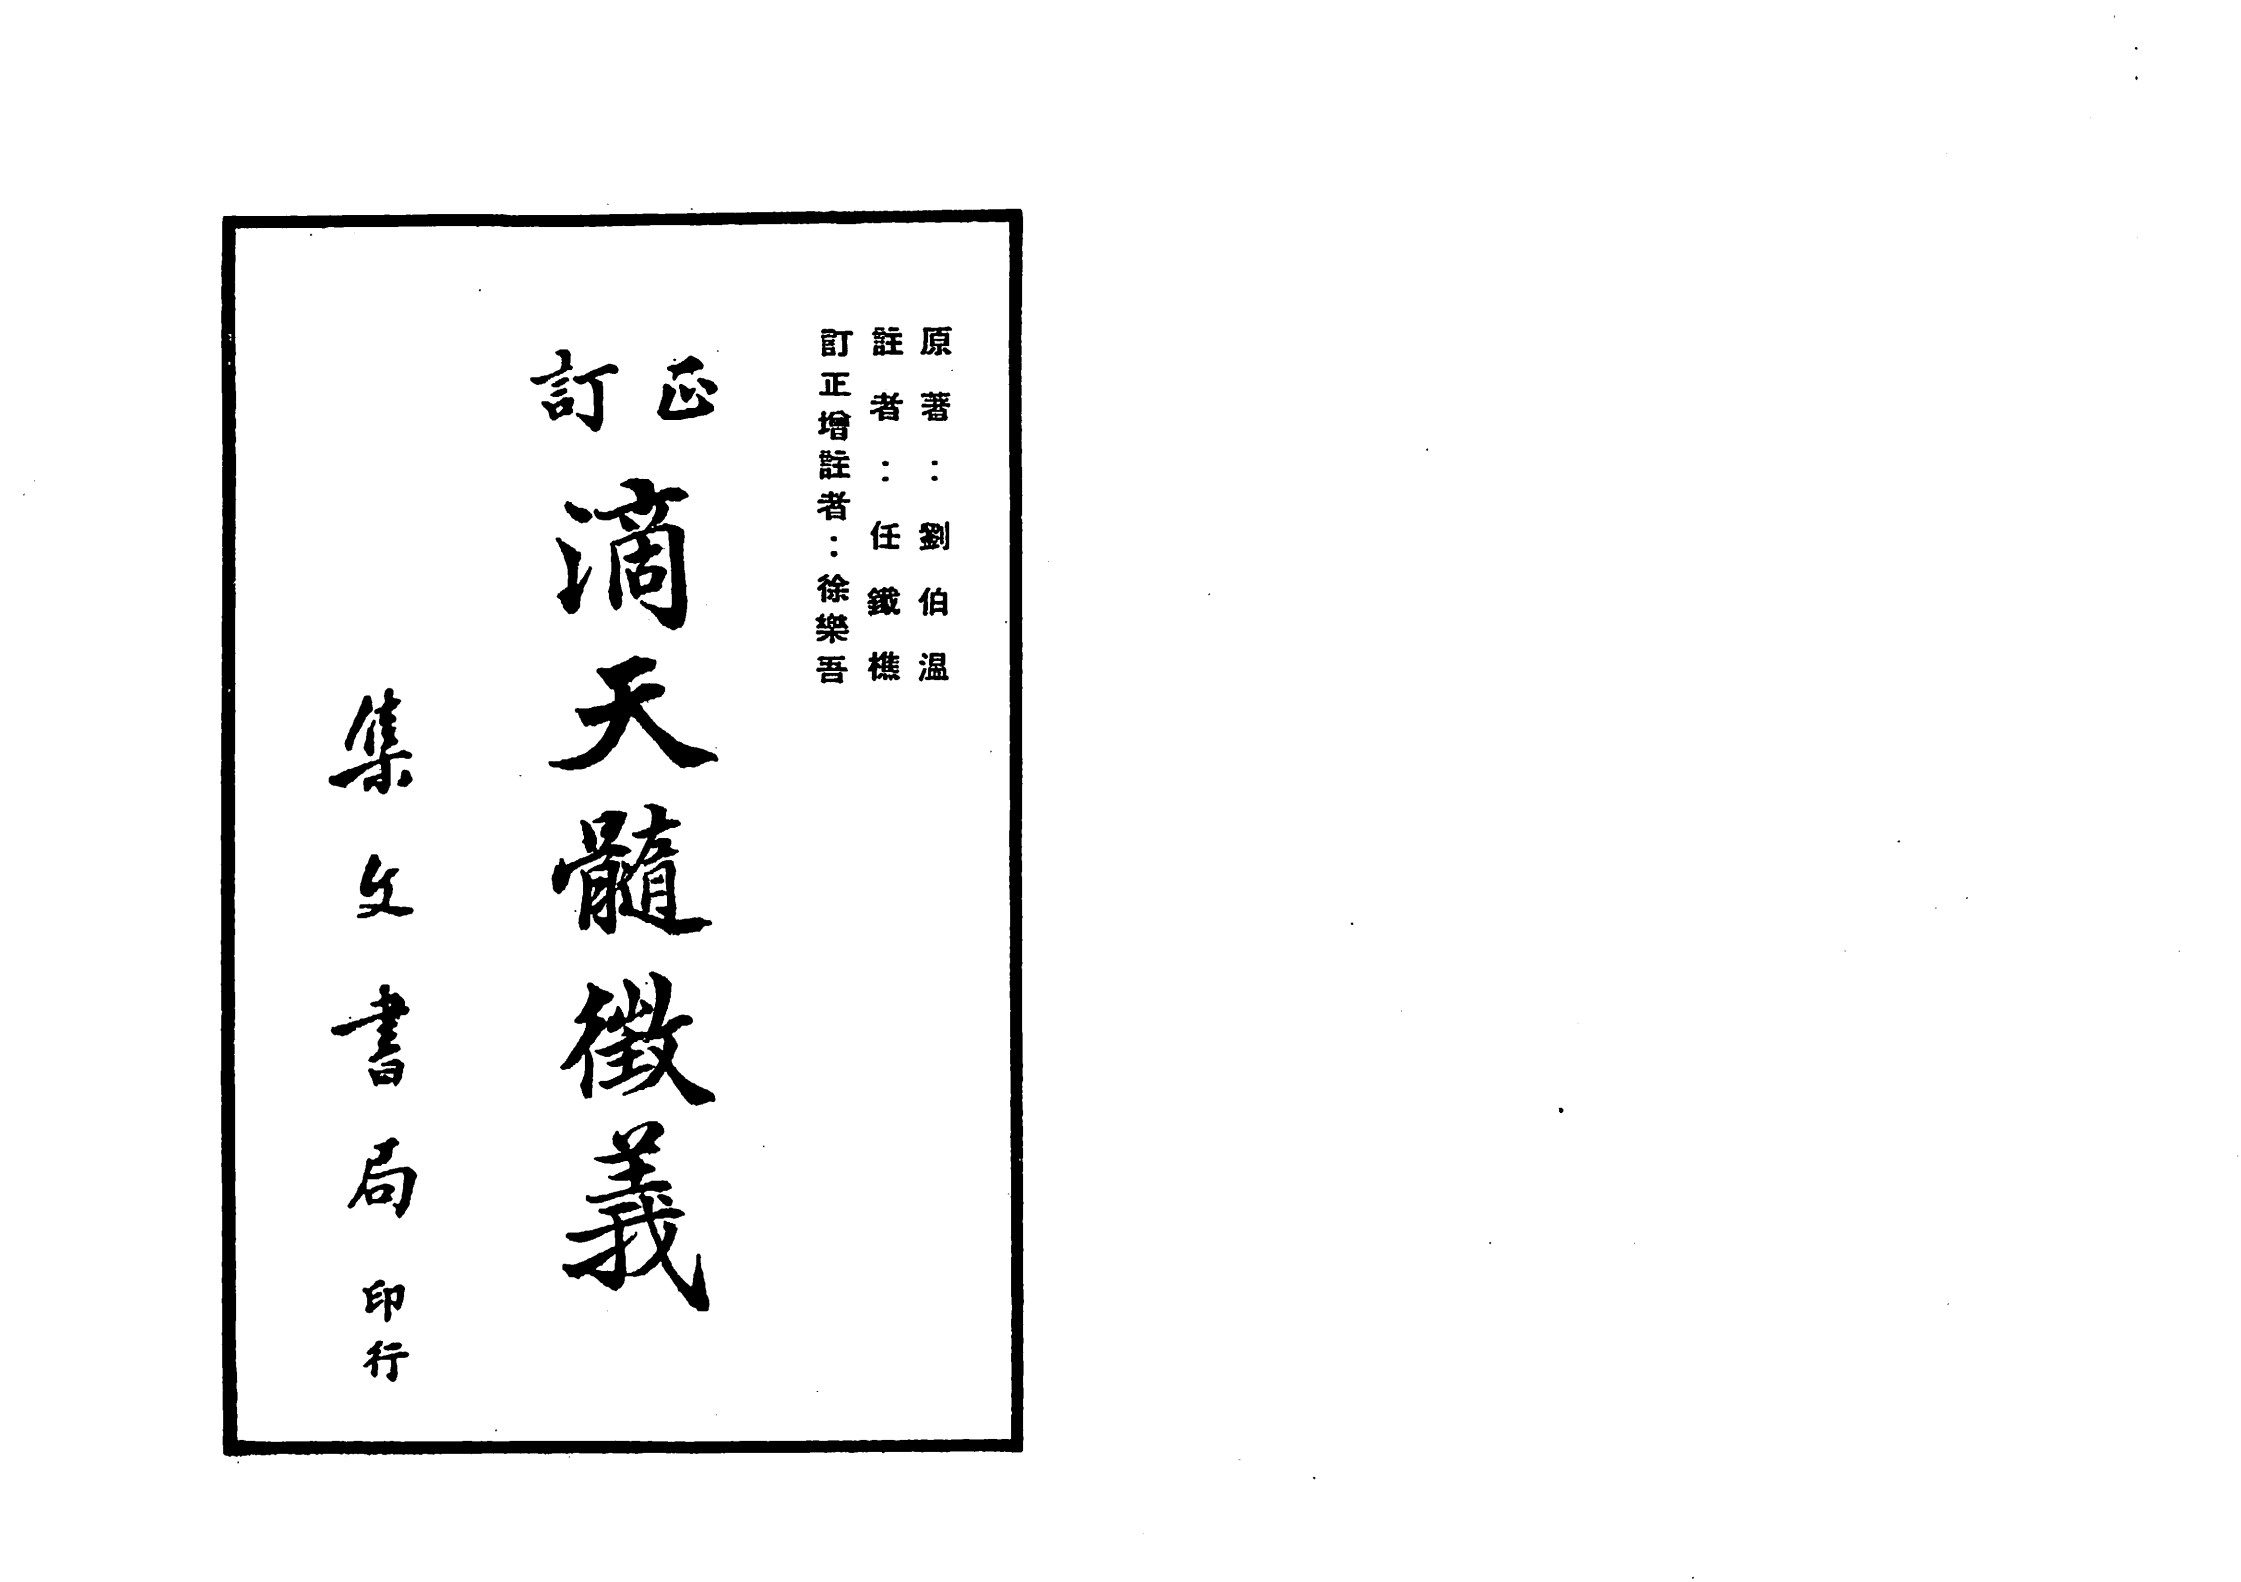 原著：劉伯温
註者：任鐵樵
訂正增註者：徐樂吾
訂正
滴天髓徵義
集文書局印行